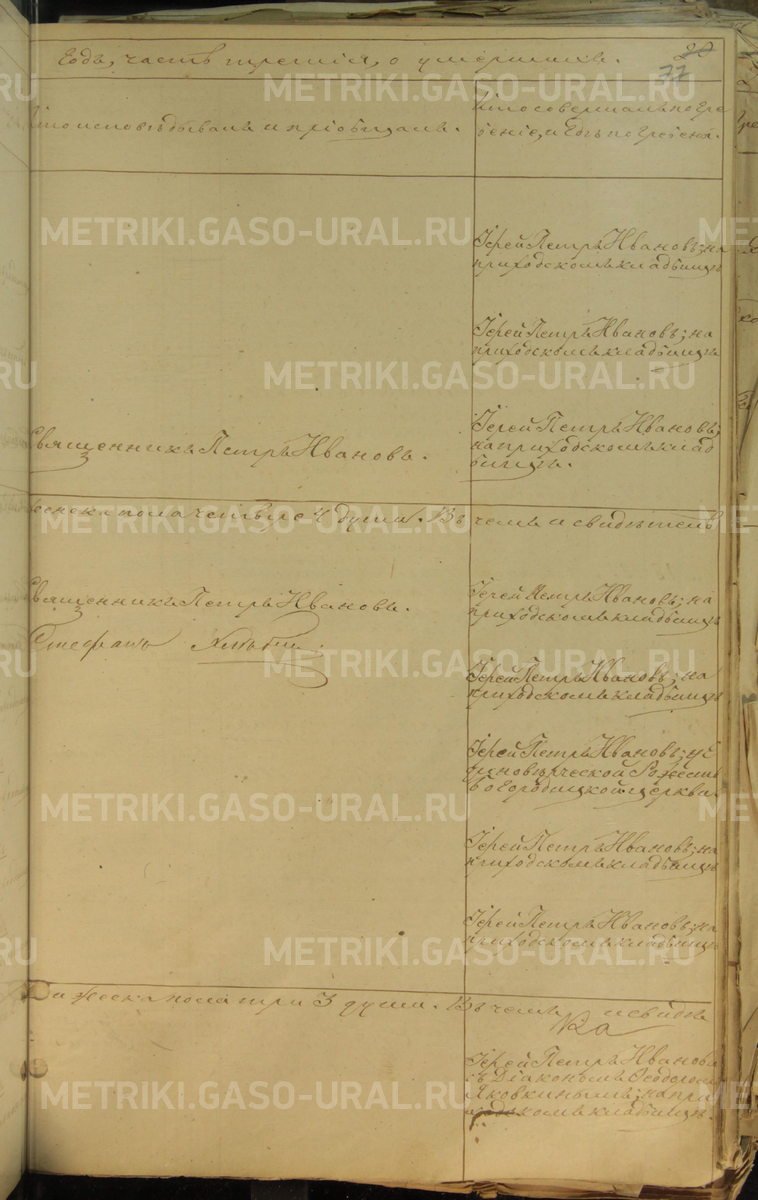 Годъ, часть третія, о умершихъ.
20
77
Кто исповѣдывалъ и пріобщалъ.
Кто совершалъ погре
беніе, и гдѣ погребены.
Іерей Петръ Ивановъ; на
приходскомъ кладбищѣ
Іерей Петръ Ивановъ; на
приходскомъ кладбищѣ
Священникъ Петръ Ивановъ.
Іерей Петръ Ивановъ;
на приходскомъ клад
бищѣ.
женска пола четыре 4 души. Въ чемъ и свидѣтель
Священникъ Петръ Ивановъ.
Стефанъ
Іерей Петръ Ивановъ; на
приходскомъ кладбищѣ
Іерей Петръ Ивановъ; на
приходскомъ кладбищѣ
Іерей Петръ Ивановъ; у е
диновѣрческой Рожест
вобогородицкой церкви.
Іерей Петръ Ивановъ; на
приходскомъ кладбищѣ
Іерей Петръ Ивановъ; на
приходскомъ кладбищѣ
а женска пола три 3 души. Въ чемъ и свидѣ
Іерей Петръ Ивановъ
съ Діакономъ Ѳеодоромъ
Яковкинымъ; на при
ходскомъ кладбищѣ.
METRIKI.GASO-URAL.RU